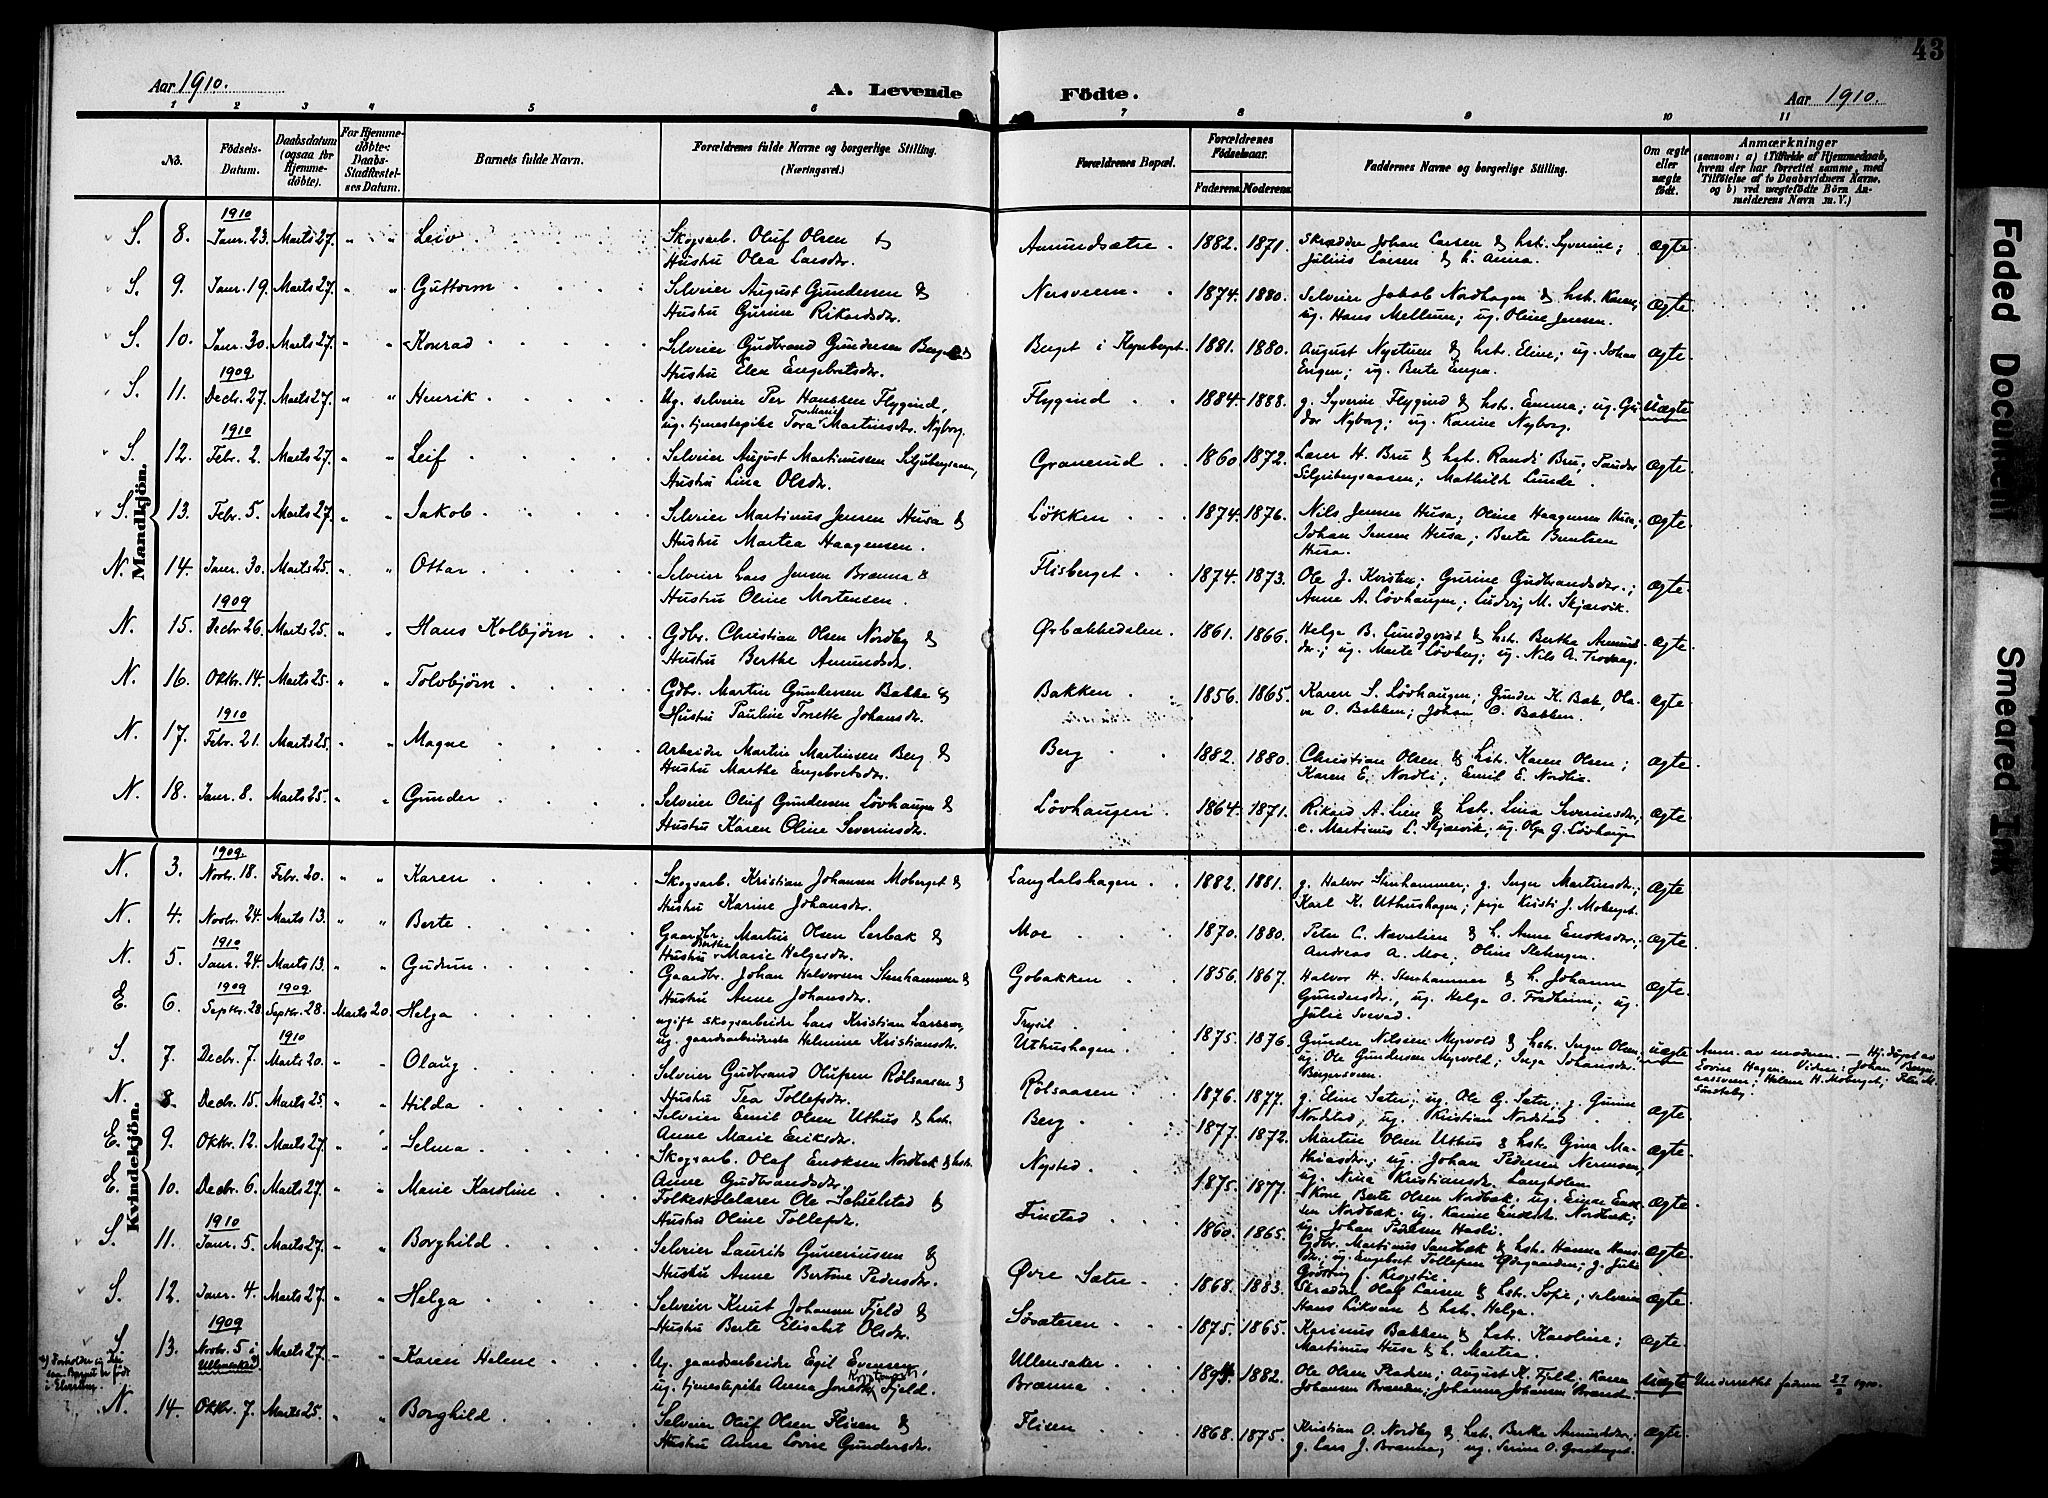 43
Aar 1910.
A. Levende Födte.
Aar 1910.
1 2 3 4 5 6 7 8 9 10 11
No.
Födsels-Datum.
Daabsdatum (ogsaa for Hjemme-døbte).
For Hjemme-døbte: Daabs-Stadfæstel-ses Datum.
Barnets fulde Navn.
Forældrenes fulde Navne og borgerlige Stilling.
(Næringsvei.)
Forældrenes Bopæl.
Forældrenes Födselsaar.
Faderens. Moderens.
Faddernes Navne og borgerlige Stilling.
Om ægte eller uægte födt.
Anmærkninger
(saasom: a) i Tilfælde af Hjemmedaab, hvem der har forrettet samme, med Tilföielse af to Daabsvidners Navne, og b) ved uægtefödte Börn An-melderens Navn m. V.)
Mandkjön.
1910
S. 8. Janr. 23. Marts 27. " " Leiv Skogsarb. Oluf Olsen & Amundsætre 1882. 1871. Skrædder Johan Larsen & hst. Syverine; Ægte
Hustru Olea Larsdr. Julius Larsen & h. Anna.
S. 9. Janr. 19. Marts 27. " " Guttorm Selveier August Gundersen & Nersveen 1874. 1880. Selveier Jakob Nordhagen & hst. Karen; Ægte.
Hustru Gurine Rikardsdr. ug. Hans Mellum; ug. Oline Jensen.
S. 10. Janr. 30. Marts 27. " " Konrad Selveier Gudbrand Gundersen Berget & Berget i 1881. 1880. August Nystuen & hst. Eline; ug. Johan Ægte
Hustru Elen Engebretsdr. Engen; ug. Berte Enger.
1909
S. 11. Decbr. 27. Marts 27. " " Henrik Ug. selveier Per Hanssen Flygind, Flygind 1884 1888. g. Syverine Flygind & hst. Emma; ug. Gun- Uægte
ug. tjenestepike Tora Marie Martinsdr. Nyborg. Nyborg; ug. Karine Nyborg.
1910
S. 12. Febr. 2. Marts 27. " " Leif Selveier August Martinussen Siljubergsaasen, Granerud 1860 1872. Lars H. Bru & hst. Randi Bru; Ægte
Hustru Lina Olsdr. Siljubergsaasen; Mathilde Lunde.
S. 13. Febr. 5. Marts 27. " " Jakob Selveier Martinus Jensen Husa & Løkken 1874. 1876. Nils Jensen Husa; Oline Haagensen Husa, Ægte
Hustru Martea Haagensen. Johan Jensen Husa; Berte Berntsen
Husa.
N. 14. Janr. 30. Marts 25. " " Ottar Selveier Lars Jensen Brænna & Flisberget 1874. 1873. Ole J. Kvisten; Gurine Gudbrandsdr.; Ægte.
Hustru Oline Mortensen. Anne A. Løvhaugen; Ludvig M. Skjærvik.
1909
N. 15. Decbr. 26. Marts 25. " " Hans Kolbjørn Gdbr. Christian Olsen Nordby & Ørbækkedalen 1861. 1866. Helge B. Lundqvist & hst. Berthe Amunds- Ægte.
Hustru Berthe Amundsdr. dr.; ug. Marte Løvberg; ug. Nils A.
N. 16. Oktbr. 14. Marts 25. " " Tolvbjørn Gdbr. Martin Gundersen Bakke & Bakken 1856. 1865. Karen S. Løvhaugen; Gunder K. Bak, Ola- Ægte.
Hustru Pauline Torette Johansdr. va O. Bakken; Johan O. Bakken.
1910
N. 17. Febr. 21. Marts 25. " " Magne Arbeider Martin Martinsen Berg & Berg 1882. 1880. Christian Olsen & hst. Karen Olsen; Ægte.
Hustru Marthe Engebretsdr. Karen E. Nordli; Emil E. Nordli.
N. 18. Janr. 8. Marts 25. " " Gunder Selveier Oluf Gundersen Løvhaugen & Løvhaugen 1864. 1871. Rikard A. Lien & hst. Lina Severinsdr.; Ægte.
Hustru Karen Oline Severinsdr. e. Martinus L. Skjærvik; ug. Olga G. Løvhaugen
Kvindekjön.
1909.
N. 3. Novbr. 18. Febr. 20. " " Karen Skogsarb. Kristian Johansen Moberget & Langdalshagen 1882. 1881. g. Halvor Stenhammer; g. Inger Martinsdr.; Ægte
Hustru Karine Johansdr. Karl K. Uthushagen; pige Kristi J. Moberget.
N. 4. Novbr. 24. Marts 13. " " Berte Gaardbr. Martin Olsen Lerbak & Moe 1870. 1880. Peter C. Næverlien & h. Anne Eriksdr.; Ægte.
Hustru Berthe Marie Helgesdr. Andreas A. Moe; Oline
1910
N. 5. Janr. 24. Marts 13. " " Gudrun Gaardbr. Johan Halvorsen Stenhammer & Gobakken 1856. 1867. Halvor H. Stenhammer & h. Johanne Ægte.
Hustru Anne Johansdr. Gundersdr., ug. Helga O. Fredheim; ug.
Julie Svevad.
1909 1909
E. 6. Septbr. 28. Septbr. 28. Marts 20. Helga ugift skogsarbeider Lars Kristian Larsson, Trysil 1875. 1876. Gunder Nilsen Myrvold & hst. Inger Olsen, uægte Anm. av moderen. — Hj. døpt av
ug. gaardsarbeiderske Helmine Kristiansdr. Uthushagen ug. Ole Gundersen Myrvold; Inga Johansdr. Lovise Hagen. Vidner: Johan
Bergersveen. Helene H. Moberget;
1910
S. 7. Decbr. 7. Marts 20. " " Olaug Selveier Gudbrand Olufsen Rølsaasen & Rølsaasen 1876. 1877. g. Eline Sæter; ug. Ole G. Sæter. g. Gunine Ægte.
Hustru Tea Tollefsdr. Nordstad; ug. Kristian Nordstad
N. 8. Decbr. 15. Marts 25. " " Hilda Selveier Emil Olsen Uthus & hst. Berg 1877. 1872. Martin Olsen Uthus & hst. Gina Ma- Ægte.
Anne Marie Eriksdr. thiasdr.; ug. Johan Pedersen
ug. Nina Kristiansdr. Langholen
E. 9. Oktbr. 12. Marts 27. " " Selma Skogsarb. Olaf Eriksen Nordbak & hst. Nystad 1875. 1877. Kone Berte Olsen Nordbak. ug. Einar Erik- Ægte
Anne Gudbrandsdr. sen Nordbak; ug. Karine Nordbak;
ug. Johan Pedersen Hasli.
E. 10. Decbr. 6. Marts 27. " " Marie Karoline Folkeskolelærer Ole Schulstad & Finstad 1860. 1865. Gdbr. Martinus Sandbæk & hst. Hanna Hans- Ægte.
Hustru Oline Tollefsdr. dr.; ug. Engebret Tollefsen Ødegaarden; g. Julie
1910
S. 11. Janr. 5. Marts 27. " " Borghild Selveier Laurits Guneriussen & Øvre Sætre 1868. 1883. Skrædder Olaf Larsen & hst. Sofie; selveier Ægte.
Hustru Anne Bertine Pedersdr. Hans Likveen & hst. Helga.
S. 12. Janr. 4. Marts 27. " " Helga Selveier Knut Johansen Fjeld & Søsæteren 1875. 1865. Karinus Bakken & hst. Karoline; Ægte.
Hustru Berte Elisabet Olsdr. Martinus Husa & h. Martea.
1909
S. 13. Novbr. 5 i Ullensaker Marts 27. " " Karen Helene Ug. gaardsarbeider Egil Evensen, Ullensaker 1882. Ole Olsen Pladsen; August K. Fjeld, Karen Uægte Underrettet faderen 27/8 1910.
ug. tjenestepike Anna Fjeld. Brænna Johansen Brænden; Johanne Johansen
N. 14. Oktbr. 7. Marts 25. " " Borghild Selveier Oluf Olsen Flisen & Flisen 1868. 1875. Kristian O. Nordby & hst. Berthe Amundsdr.; Ægte.
Hustru Anne Lovise Gundersdr. g. Lars J. Brænna; ug. Serine O.
Faded Document
Smeared Ink